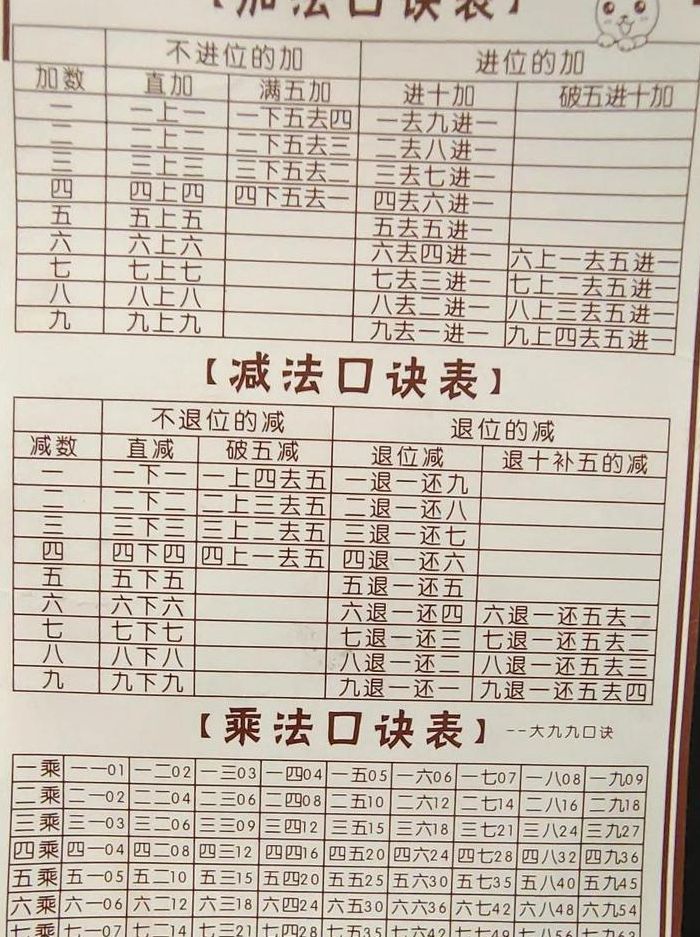 【加法口诀表】
不进位的加 进位的加
加数 直加 满五加 进十加 破五进十加
一 一上一 一下五去四 一去九进一
二 二上二 二下五去三 二去八进一
三 三上三 三下五去二 三去七进一
四 四上四 四下五去一 四去六进一
五 五上五 五去五进一
六 六上六 六去四进一 六上一去五进一
七 七上七 七去三进一 七上二去五进一
八 八上八 八去二进一 八上三去五进一
九 九上九 九去一进一 九上四去五进一
【减法口诀表】
不退位的减 退位的减
减数 直减 破五减 退位减 退十补五的减
一 一下一 一上四去五 一退一还九
二 二下二 二上三去五 二退一还八
三 三下三 三上二去五 三退一还七
四 四下四 四上一去五 四退一还六
五 五下五 五退一还五
六 六下六 六退一还四 六退一还五去一
七 七下七 七退一还三 七退一还五去二
八 八下八 八退一还二 八退一还五去三
九 九下九 九退一还一 九退一还五去四
【乘法口诀表】 --大九九口诀
一乘 一一01 一二02 一三03 一四04 一五05 一六06 一七07 一八08 一九09
二乘 二一02 二二04 二三06 二四08 二五10 二六12 二七14 二八16 二九18
三乘 三一03 三二06 三三09 三四12 三五15 三六18 三七21 三八24 三九27
四乘 四一04 四二08 四三12 四四16 四五20 四六24 四七28 四八32 四九36
五乘 五一05 五二10 五三15 五四20 五五25 五六30 五七35 五八40 五九45
六乘 六一06 六二12 六三18 六四24 六五30 六六36 六七42 六八48 六九54
七乘 七一07 七二14 七三21 七四28 七五35 七六42 七七49 七八56 七九63